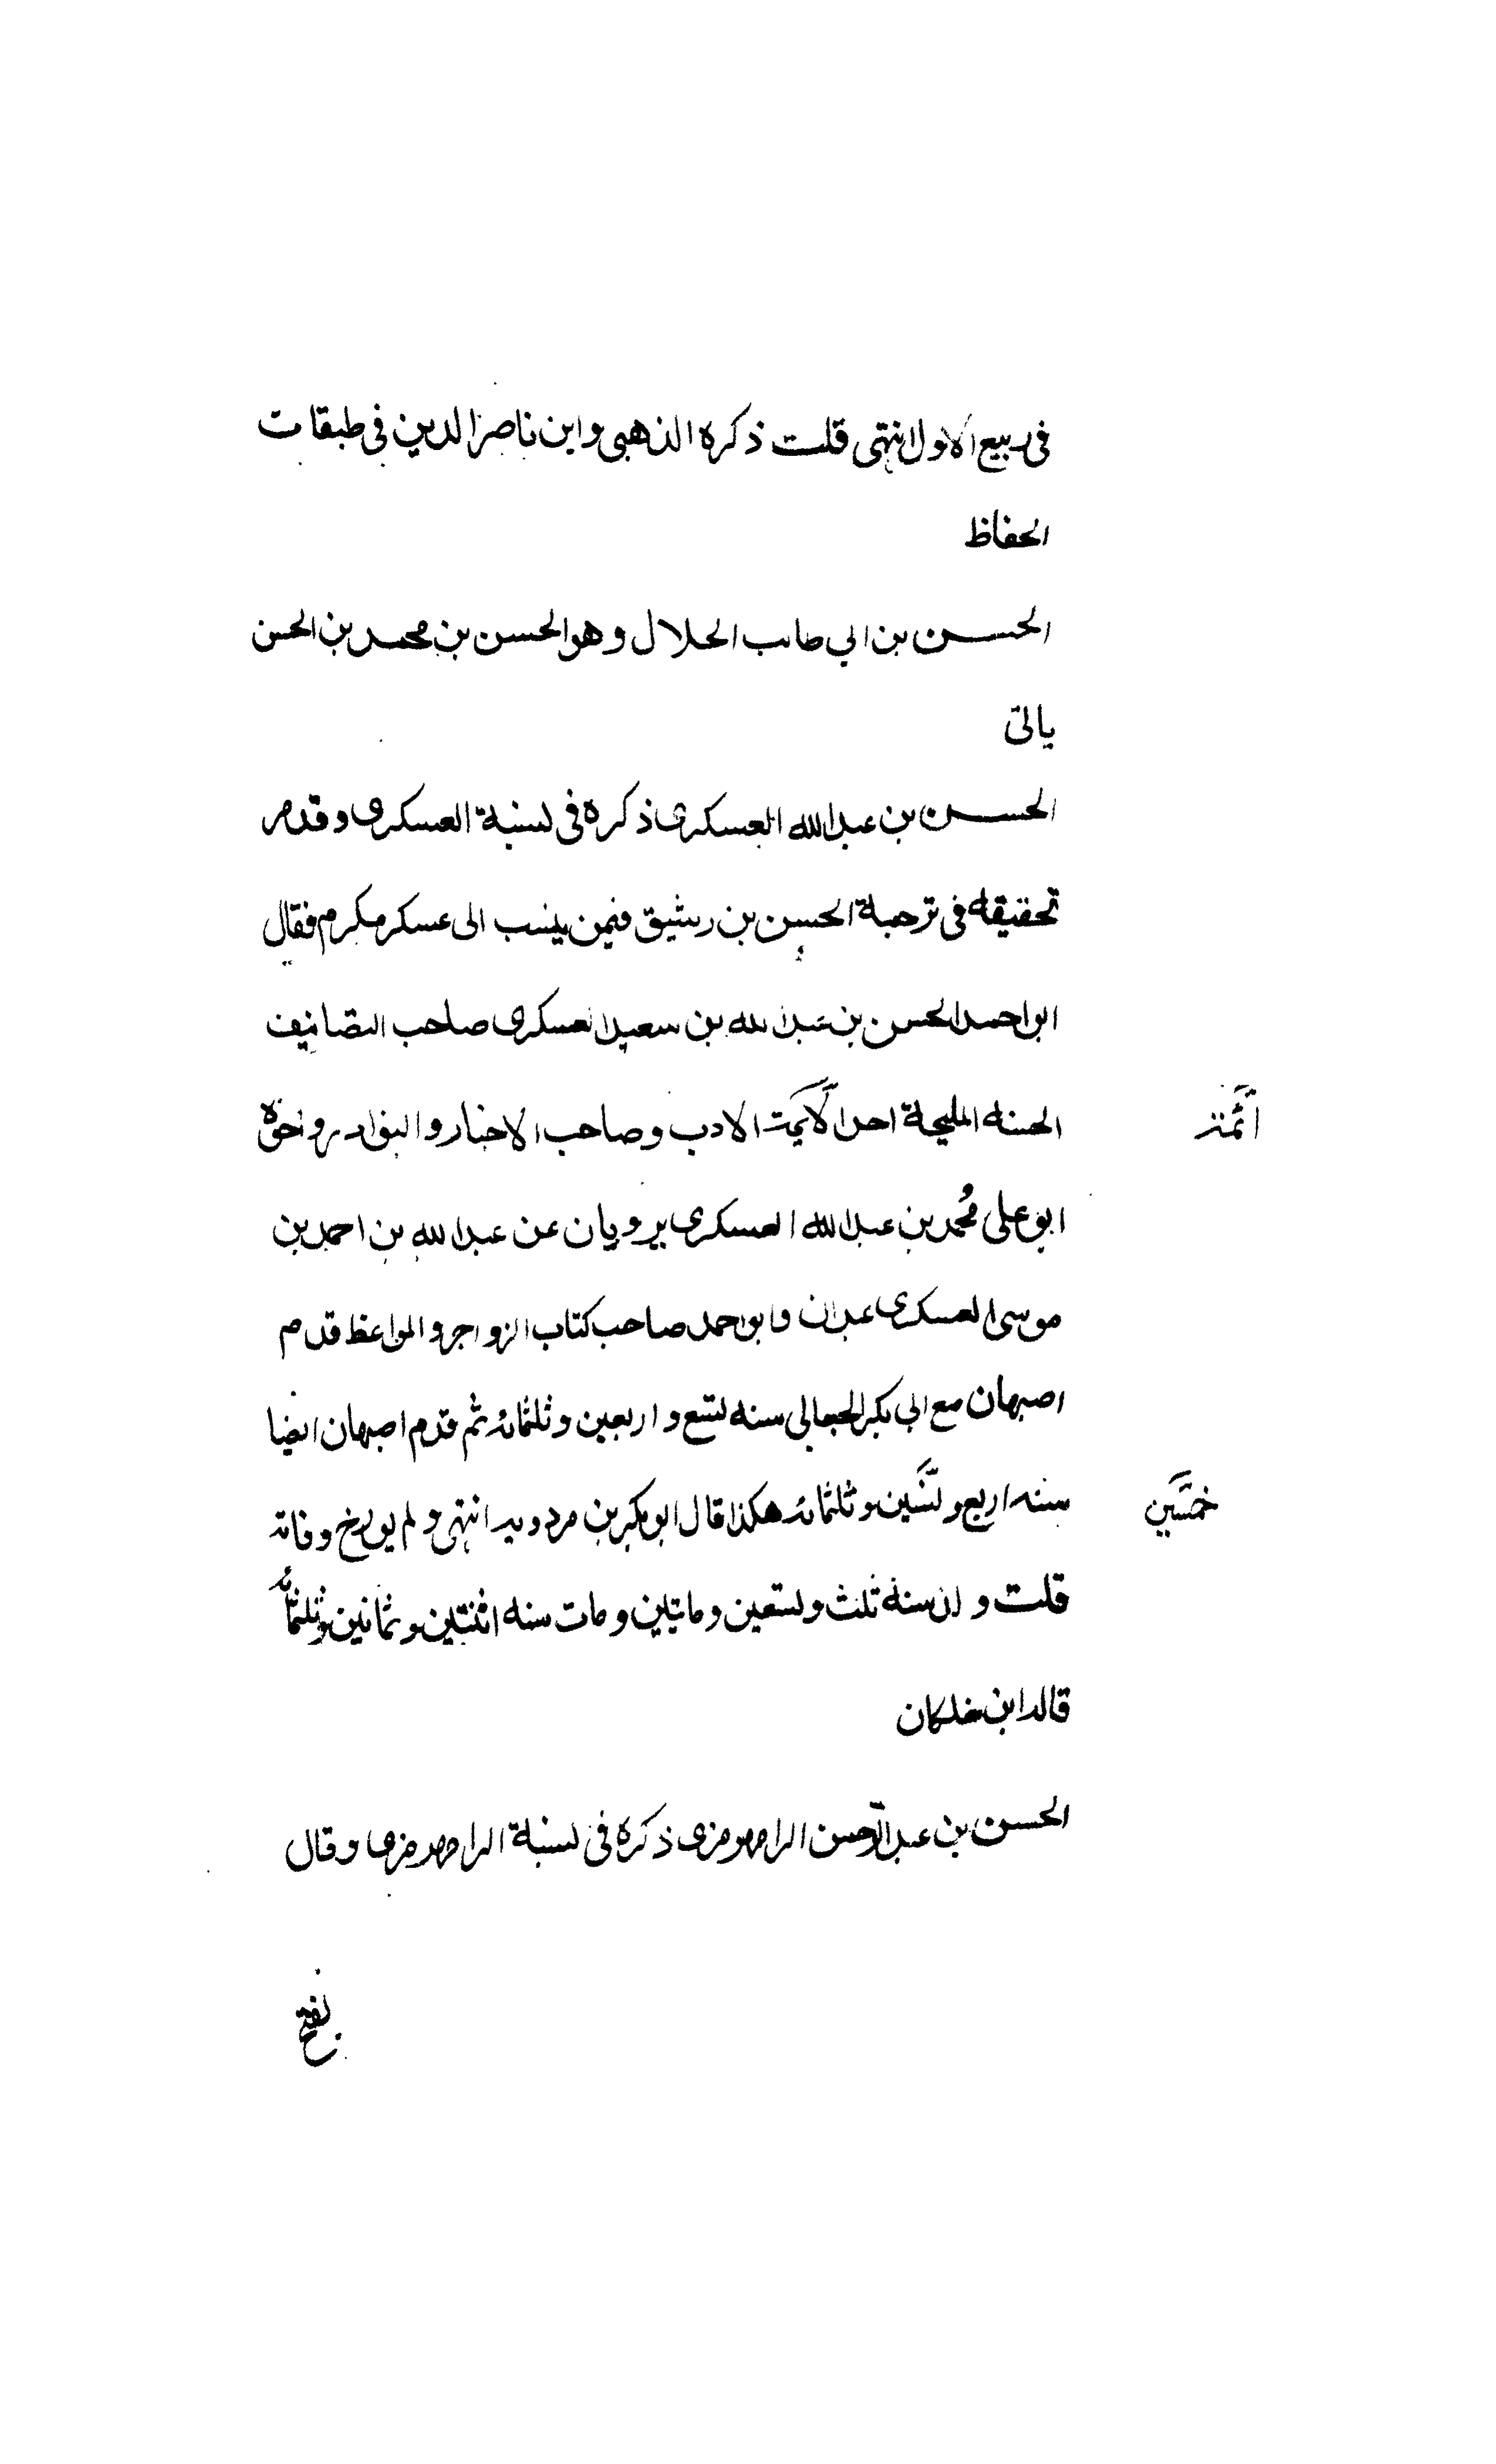 فى ربيع الاول انتهى قلت ذكره الذهبى وابن ناصر الدين فى طبقات
الحفاظ
الحسن بن ابي طالب الخلال وهو الحسن بن محمد بن الحسن
ياتى
الحسن بن عبد الله العسكرى ذكره فى نسبة العسكرى وقدم
تحقيقه فى ترجمة الحسن بن رشيق فيمن ينسب الى عسكر مكرم فقال
ابو احمد الحسن بن عبد الله بن سعيد العسكرى صاحب التصانيف
الحسنه المليحة احد الايمة الادب وصاحب الاخبار والنوادر واخوه
أئمة
ابو على محمد بن عبد الله العسكرى يرويان عن عبد الله بن احمد بن
موسى العسكرى عبدان وابو احمد صاحب كتاب الزواجر والمواعظ قدم
اصبهان مع ابي بكر الجعابي سنه تسع و اربعين و ثلثمائه ثم قدم اصبهان ايضا
سنه اربع و و ثلثمائه هكذا قال ابو بكر بن مردويه انتهى و لم يورخ وفاته
خمسين
قلت و سنه ثلث و تسعين و مايتين و مات سنه اثنتين و ثمانين و ثلثمائه
قاله ابن خلكان
الحسن بن عبد الرحمن الرامهرمزى ذكره فى نسبة الرامهرمزى وقال
بفتح